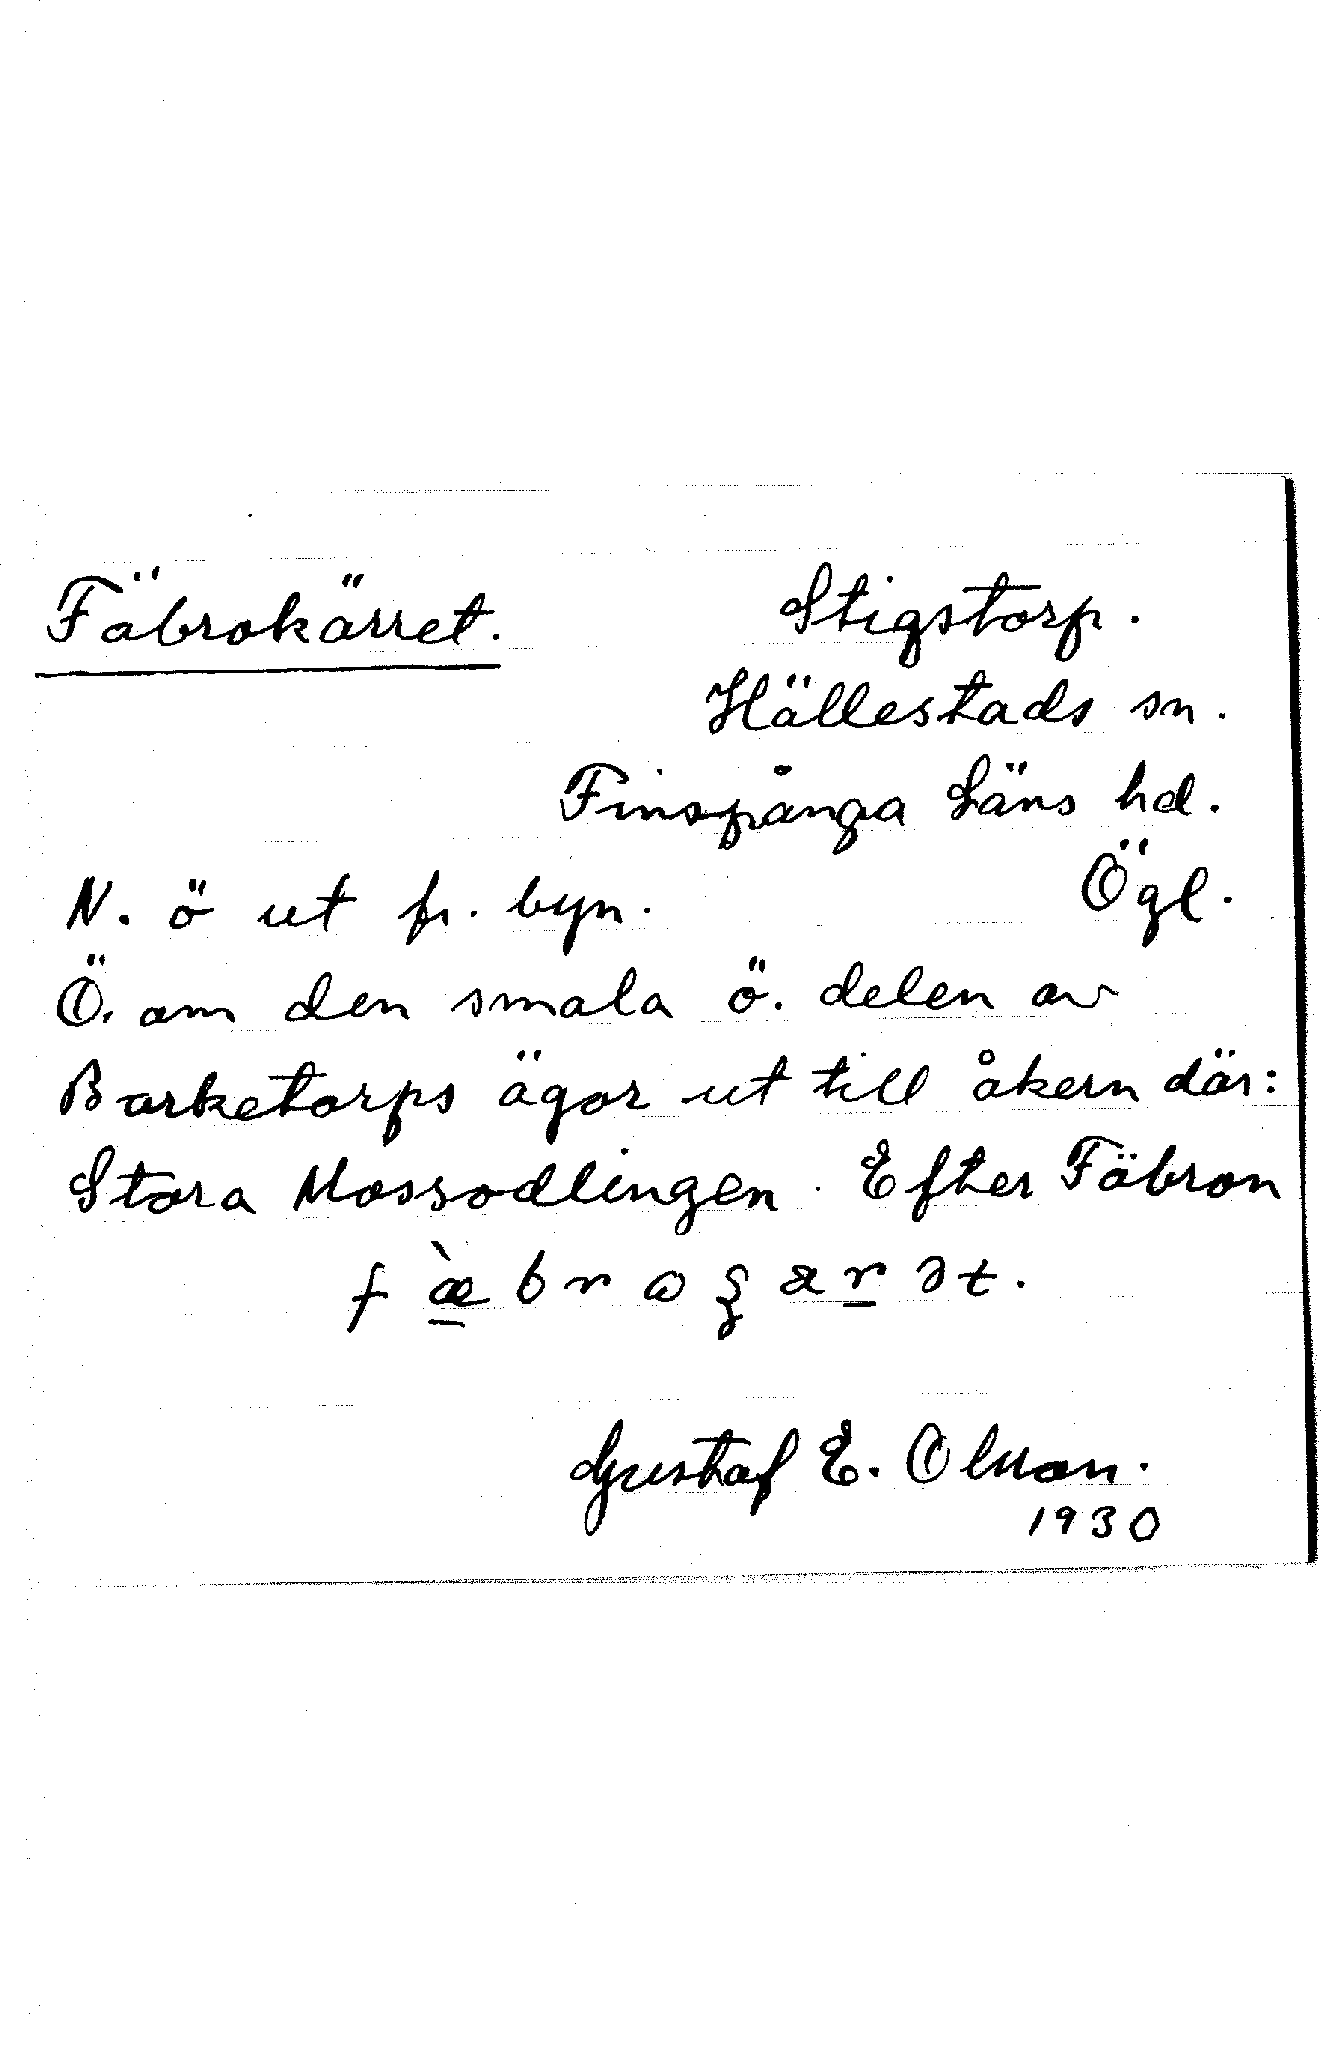 Fäbrokärret.
Stigstorp.
Hällestads sn.
Finspånga Läns hd.
Ögl.
N. ö ut fr. byn.
Ö. om den smala ö. delen av
Barketorps ägor ut till åkern där:
Stora Mossodlingen. Efter Fäbron
Gustaf E. Olsson.
1930